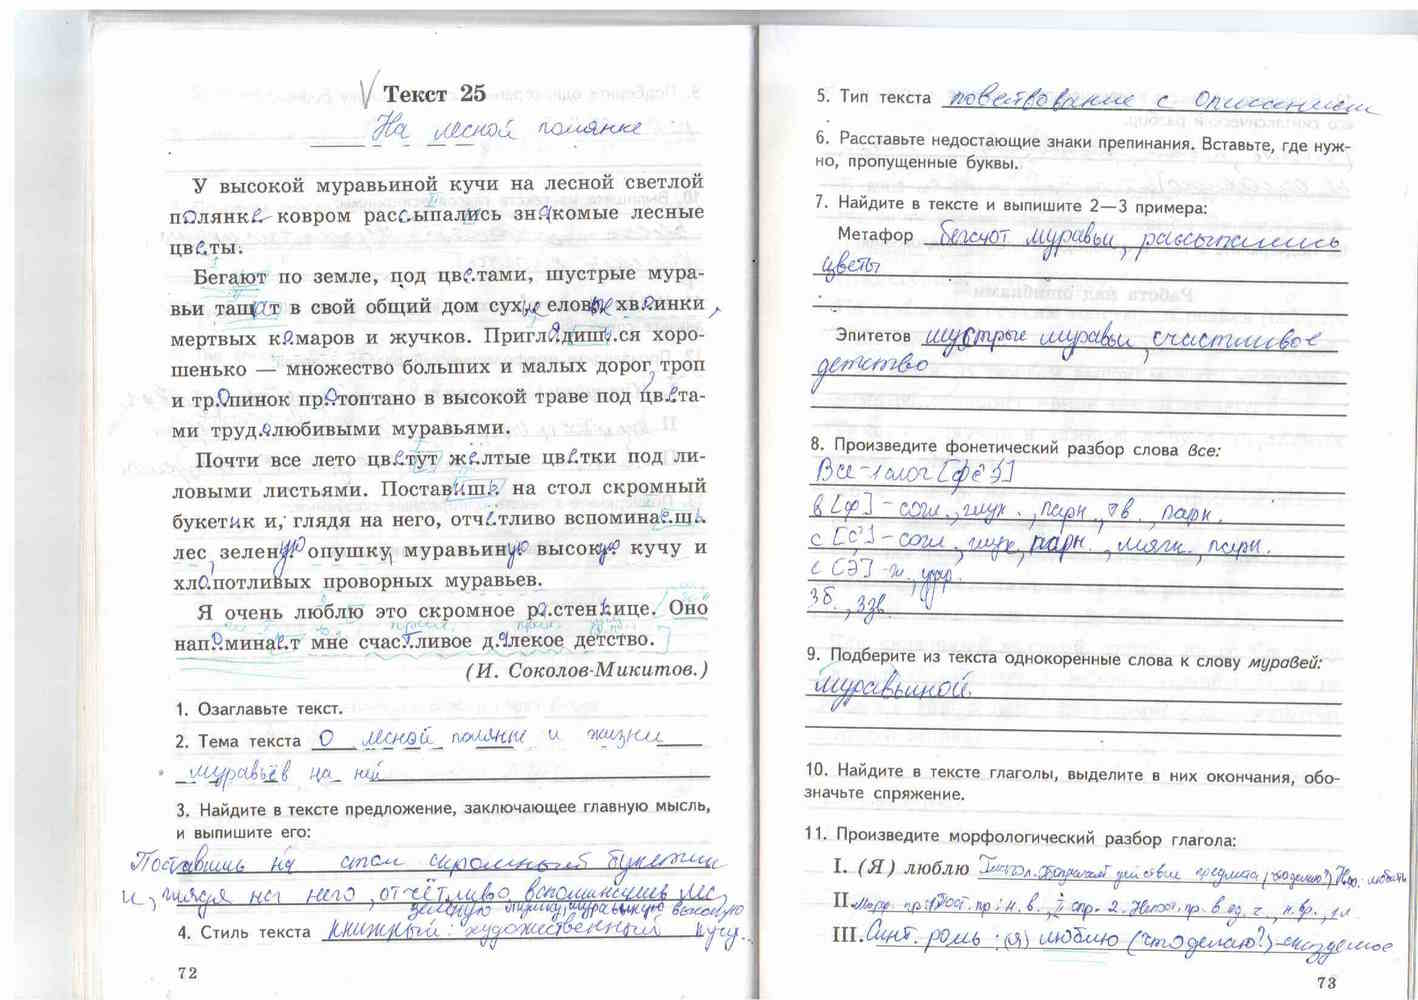 Текст 25
На лесной полянке
У высокой муравьиной кучи на лесной светлой
полянке ковром рассыпались знакомые лесные
цветы.
Бегают по земле, под цветами, шустрые мура-
вьи тащат в свой общий дом сухие еловые хвоинки,
мертвых комаров и жучков. Приглядишься хоро-
шенько — множество больших и малых дорог, троп
и тропинок протоптано в высокой траве под цвета-
ми трудолюбивыми муравьями.
Почти все лето цветут желтые цветки под ли-
ловыми листьями. Поставишь на стол скромный
букетик и, глядя на него, отчетливо вспоминаешь
лес, зеленую опушку, муравьиную высокую кучу и
хлопотливых проворных муравьев.
Я очень люблю это скромное растеньице. Оно
напоминает мне счастливое далекое детство.
(И. Соколов-Микитов.)
1. Озаглавьте текст.
2. Тема текста О лесной полянке и жизни
муравьёв на ней
3. Найдите в тексте предложение, заключающее главную мысль,
и выпишите его:
Поставишь на стол скромный букетик
и, глядя на него, отчётливо вспоминаешь лес,
зелёную опушку, муравьиную высокую
4. Стиль текста книжный: художественный кучу...
72
5. Тип текста повествование с описанием
6. Расставьте недостающие знаки препинания. Вставьте, где нуж-
но, пропущенные буквы.
7. Найдите в тексте и выпишите 2—3 примера:
Метафор бегают муравьи, рассыпались
цветы
Эпитетов шустрые муравьи, счастливое
детство
8. Произведите фонетический разбор слова все:
Все-1 слог [фс'э]
в [ф] - согл., глух., парн., тв., парн.
с [с'] - согл., глух, парн., мягк. парн.
е [э] - гл., удар.
3б., 3зв.
9. Подберите из текста однокоренные слова к слову муравей:
Муравьиной.
10. Найдите в тексте глаголы, выделите в них окончания, обо-
значьте спряжение.
11. Произведите морфологический разбор глагола:
I. (Я) люблю Глагол. обозначает действие предмета, (что делаю?) Н.ф. любить
II. Морф. пр: Пост. пр: н. в., II спр. 2. Непост. пр. в ед. ч., н. вр., 1 л
III. Синт. роль: (я) люблю (что делаю?) - сказуемое
73